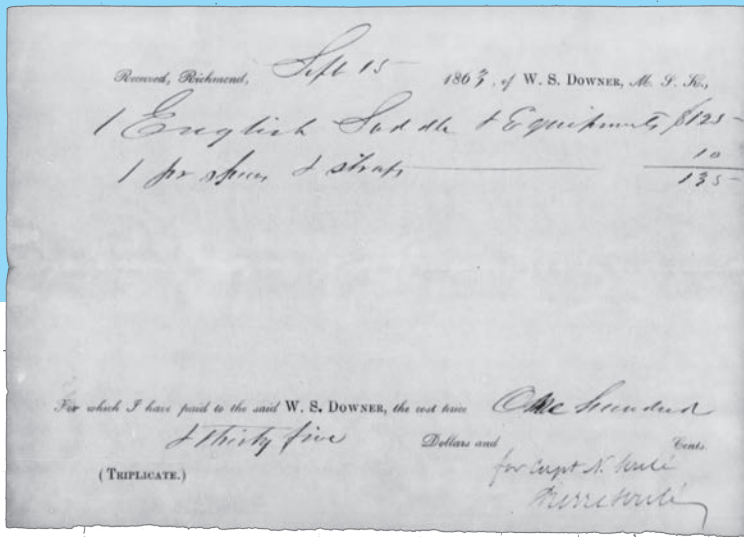 Received, Richmond, Sept 15 1863, of W. S. DOWNER, M. S. K.,
1 English Saddle & Equipments $125
1 pr spurs & straps 10
135
For which I have paid to the said W. S. DOWNER, the cost price One hundred
& thirty five Dollars and Cents.
(TRIPLICATE.) for Capt N.